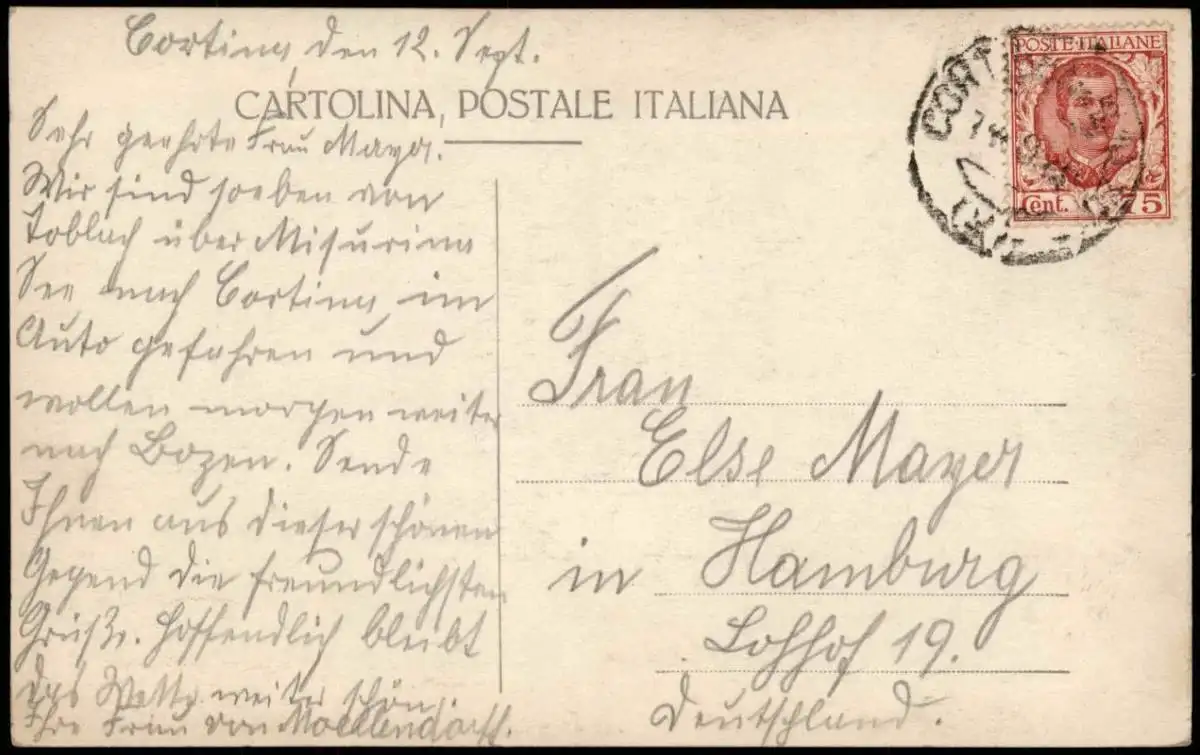 Cortina den 12. Sept.
CARTOLINA POSTALE ITALIANA
Sehr geehrte Frau Mayer.
Wir sind soeben von
Toblach über Misurina
See nach Cortina im
Auto gefahren und
wollen morgen weiter
nach Bozen. Sende
Ihnen aus dieser schönen
Gegend die freundlichsten
Grüße. Hoffendlich bleibt
das Wetter weiter schön.
Ihre Frau von Moellendorff.
POSTE ITALIANE
Cent. 75
CORTINA
Frau
Else Mayer
in Hamburg
Lohhof 19.
Deutschland.